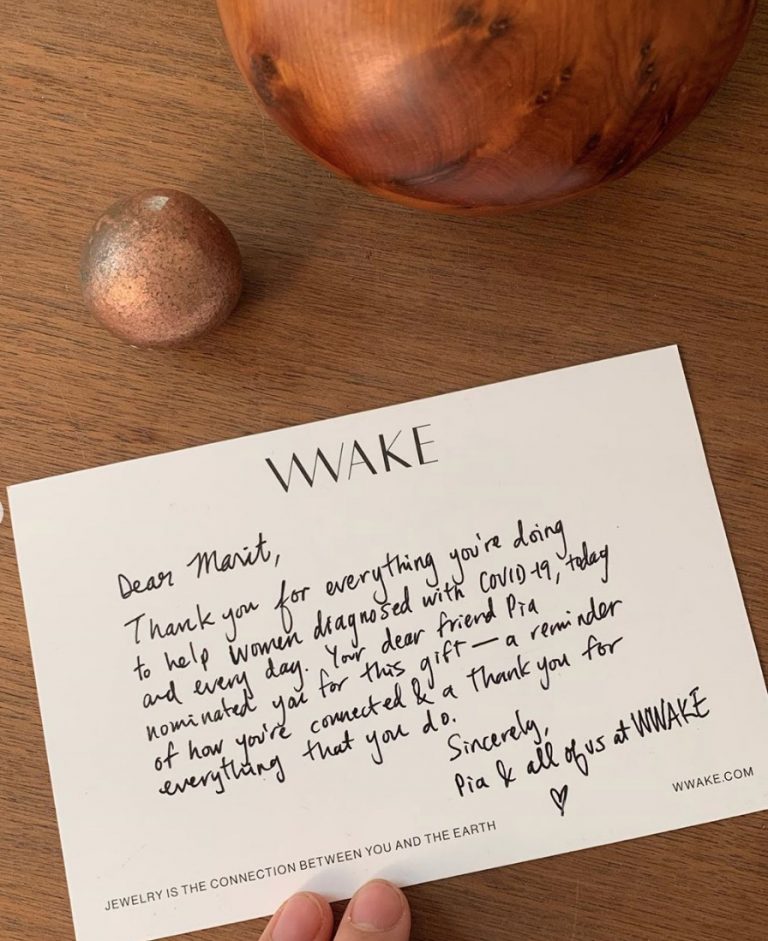 WWAKE
Dear Marit,
Thank you for everything you're doing
to help women diagnosed with COVID-19, today
and every day. Your dear friend Pia
nominated you for this gift — a reminder
of how you're connected & a thank you for
everything that you do.
Sincerely,
Pia & all of us at WWAKE
♡
WWAKE.COM
JEWELRY IS THE CONNECTION BETWEEN YOU AND THE EARTH